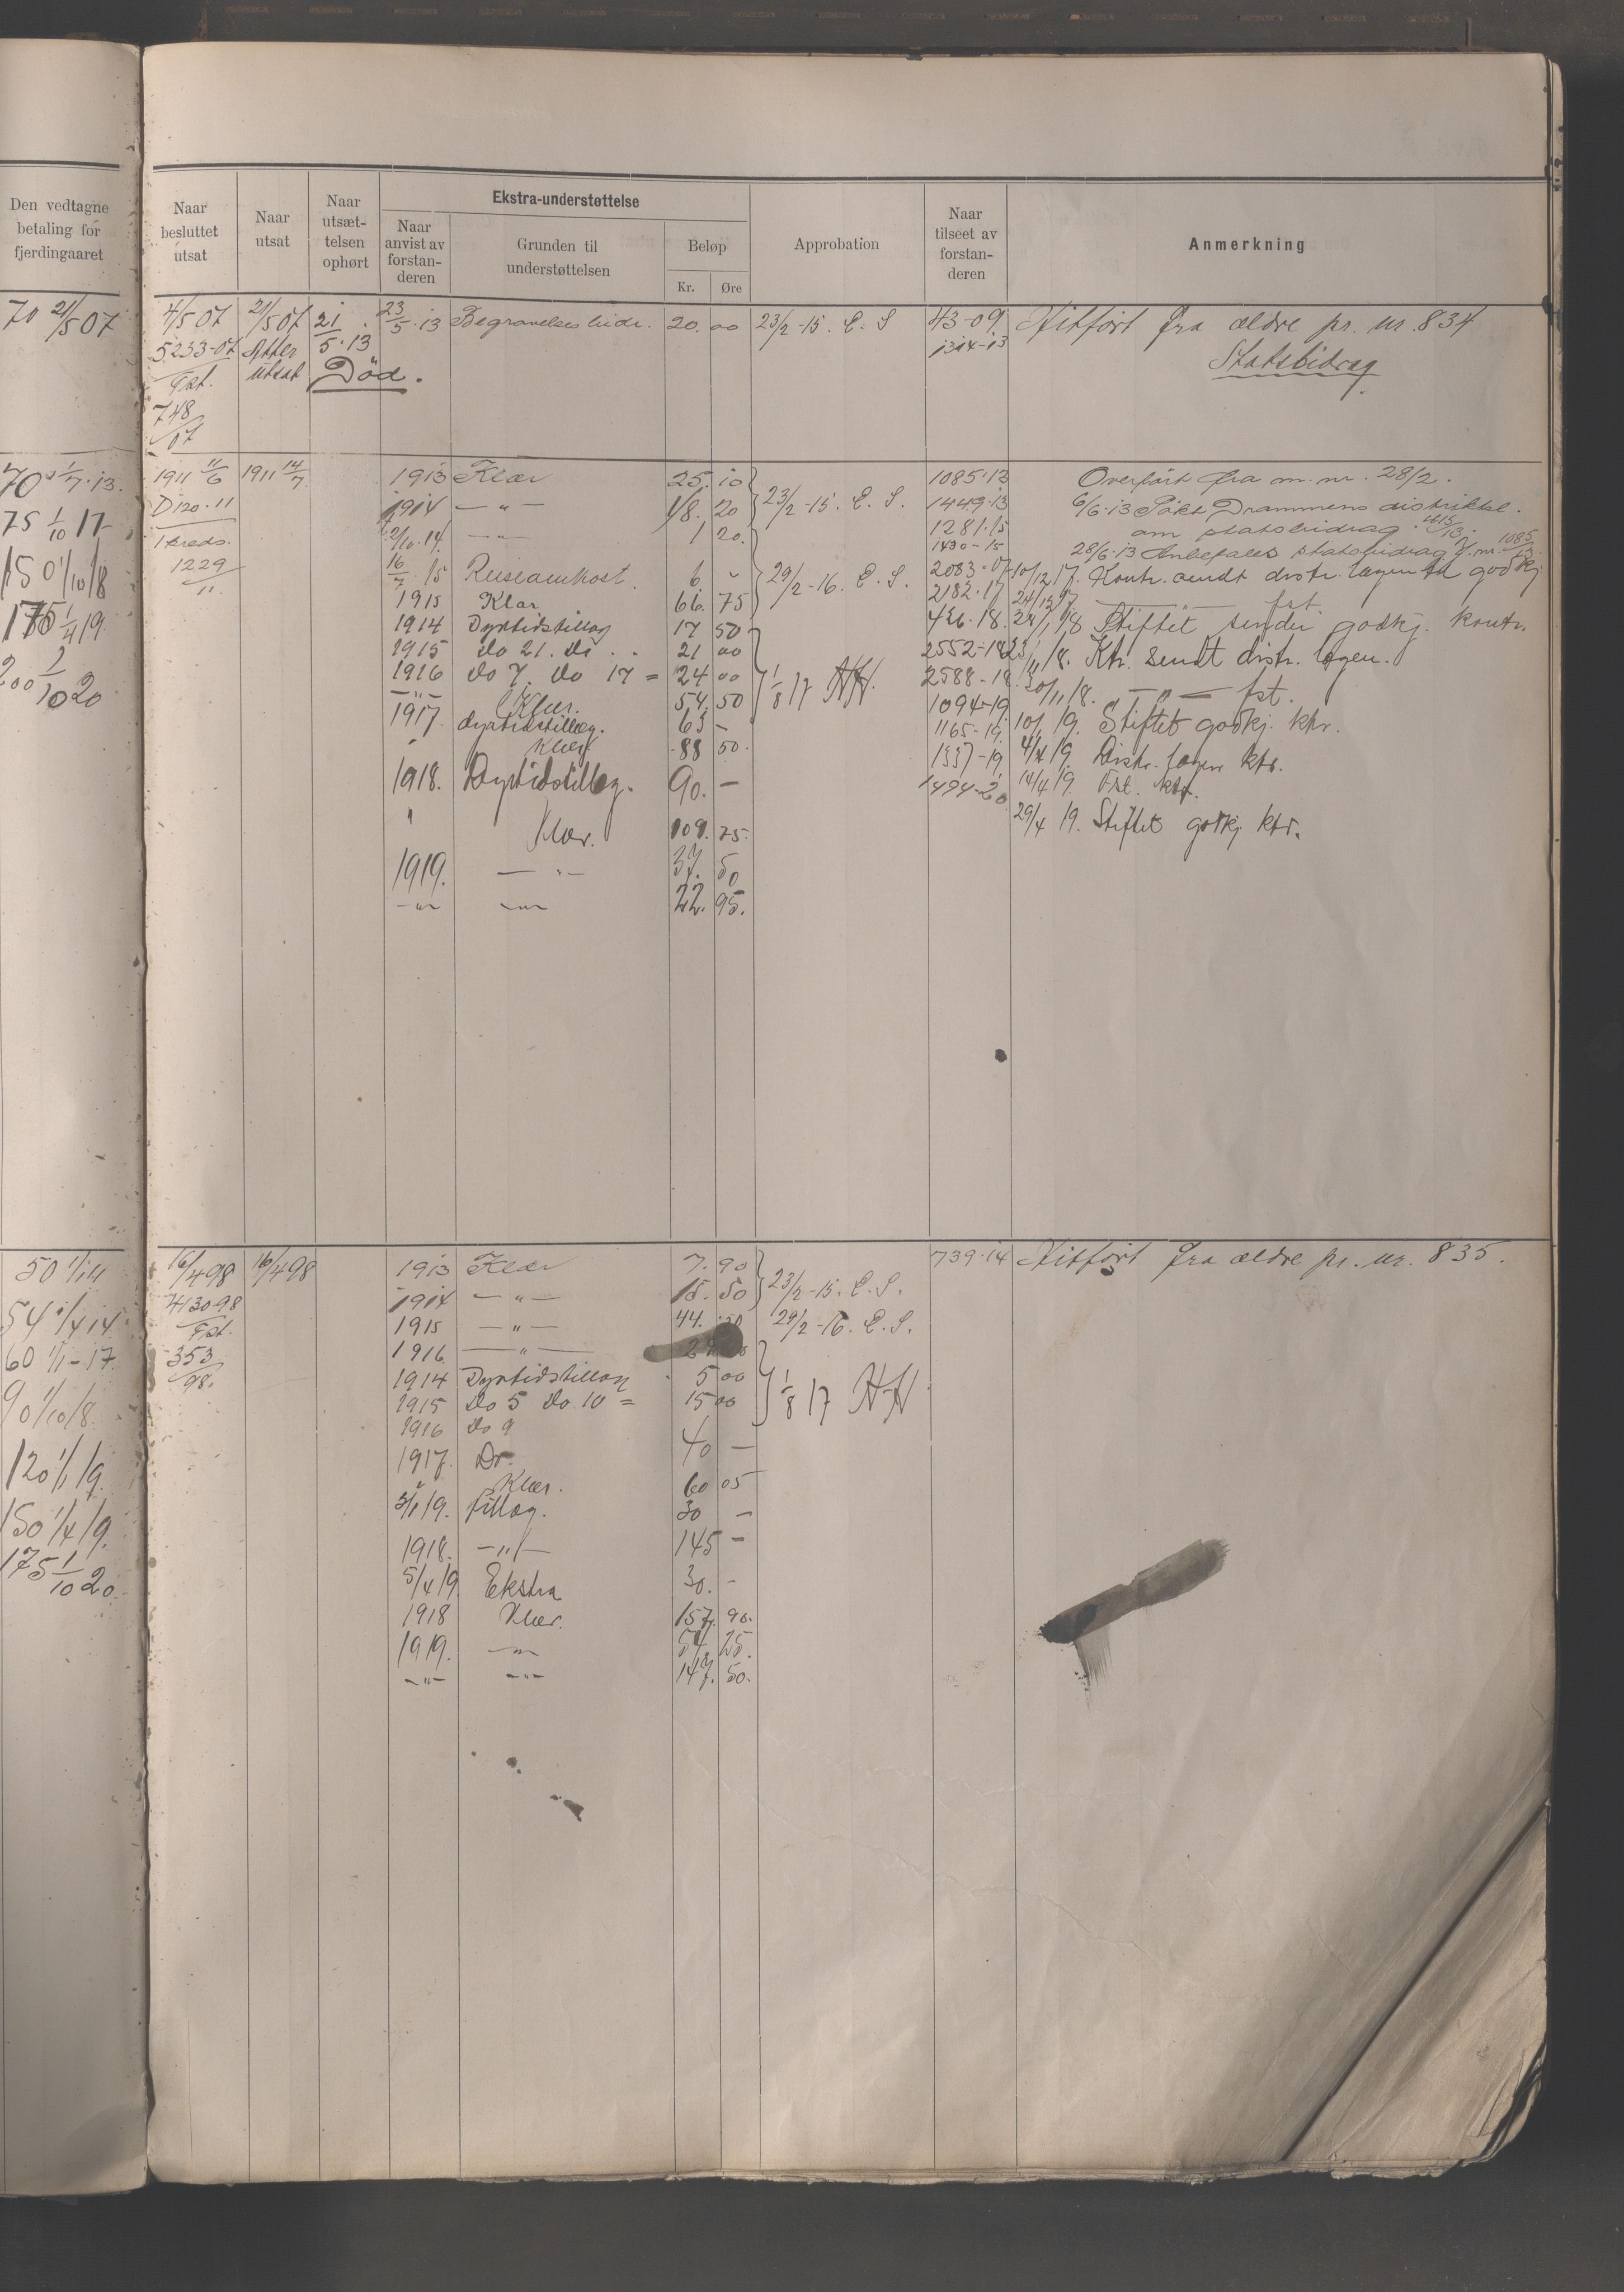 Den vedtagne betaling for fjerdingaaret
Naar besluttet utsat
Naar utsat
Naar utsæt-telsen ophørt
Ekstra-understøttelse
Naar anvist av forstan-deren
Grunden til understøttelsen
Beløp
Kr. Øre
Approbation
Naar tilseet av forstan-deren
Anmerkning
70 21/5 07 4/5 07 21/5 07 21/5.13 23/5.13 Begravelses bidr. 20. 00 23/2-15. E. S 43-09. Hitført fra ældre pr. nr. 834
5233-07 Atter 1314-13 Statsbidrag
Fst. utsat Død.
748/07
70 1/7.13. 1911 11/6 1911 14/7 1913 Klær 25. 10 23/2-15. E. S. 1085.13 Overført fra m. nr. 28/2.
D120.11 1914 —"— 18. 20 1449.13 6/6.13 Søkt Drammens distriktsl.
75 1/10 17 1 kreds. 2/10.14. —"— 1 20. 1281.15 om statsbidrag.
1430-15 28/6.13 Anbefales statsbidrag J. nr. 1085/13.
150 1/10 18 1229/11 16/7.15 Reiseomkost. 6 - 29/2-16. E. S. 2083.17 10/12 17. Kontr. sendt distr. lægen til godkj
1915 Klær 66. 75 2182.17 24/12 17 —"— fst.
175 1/4 19. 1914 Dyrtidstillæg 17 50 426.18. 28/1 18 Stiftet sender godkj. kontr.
1915 do 21. do 21 00 2552-18 23/11 18. Ktr. sendt distr. lægen.
200 1/10 20 1916 do 7. do 17 = 24 00 1/8 17 HH. 2588-18. 30/11 18. —"— fst.
—"— Klær. 54. 50 1094-19 10/1 19. Stiftet godkj. ktr.
1917. dyrtidstillæg. 63 - 1165-19. 4/4 19. Distr. lægen ktr.
Klær 88 50. 1337-19 14/4 19. Fst. ktr.
1918. Dyrtidstillæg. 90. — 1494-20. 29/4 19. Stiftet godkj ktr.
" Klær. 109. 75.
1919. —"— 37. 50
—"— —"— 22. 95.
50 1/1 11 16/4 98 16/4 98 1913 Klær 7. 90 23/2-15. E. S. 739.14 Hitført fra ældre pr. nr. 835.
4130-98 1914 —"— 15. 50
54 1/4 14. Fst. 1915 —"— 44. 29/2-16. E. S.
60 1/1-17. 353/98. 1916. —"—
1914 Dyrtidstillæg 5 00 1/8 17 HH
90 1/10 18. 1915 do 5 do 10 = 15 00
1916 do 9
120 1/1 19. 1917. Do. 40 —
Klær. 60 05
150 1/4 19. 3/1 19. tillæg. 30 —
1918. —"— 145 —
175 1/10 20. 5/4 19. Ekstra 30. -
1918 Klær. 157. 90.
1919. —"— 54. 25.
—"— —"— 147. 50.